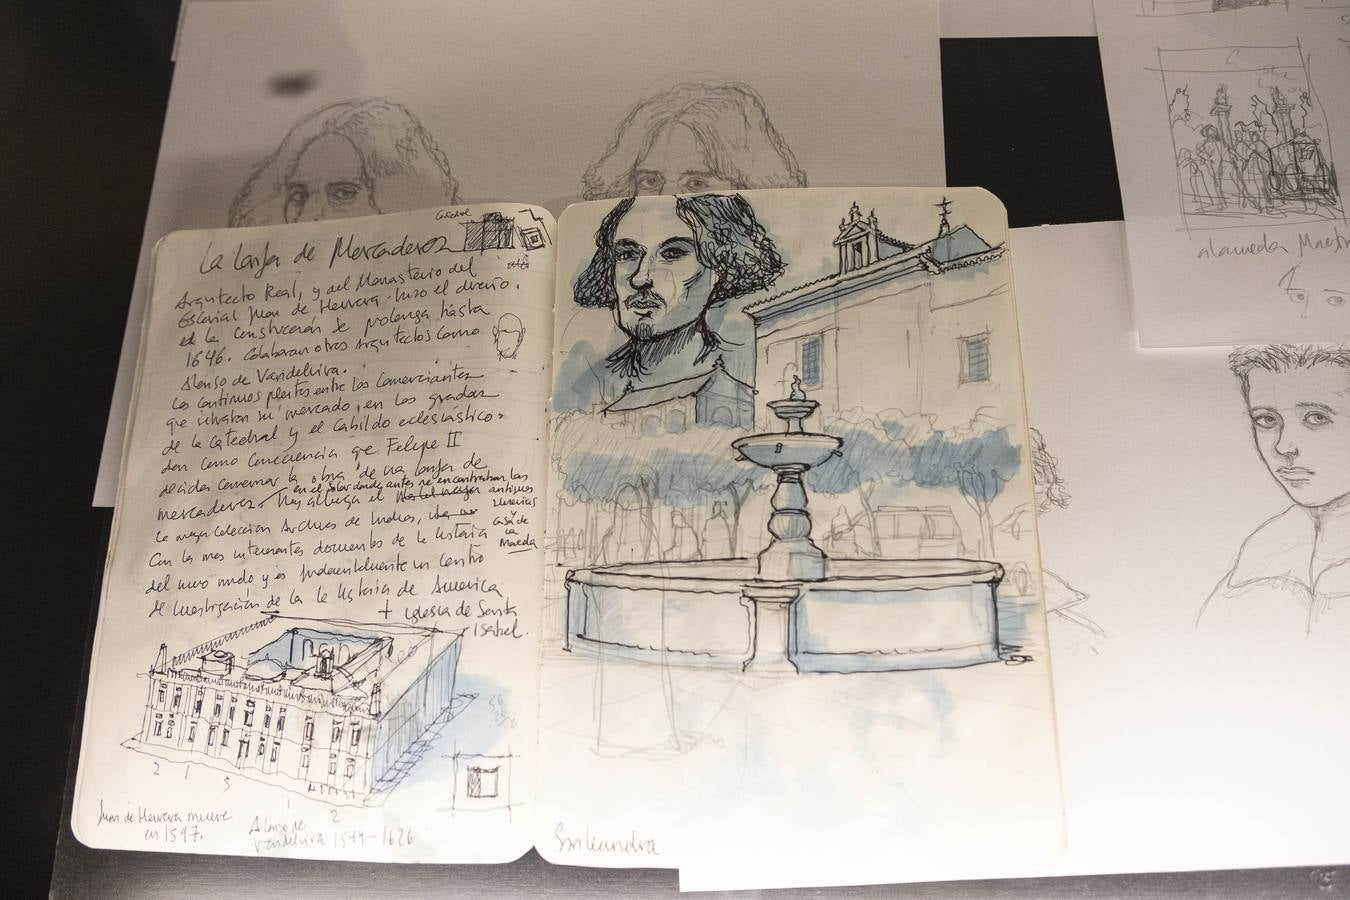 Catedral
La Lonja de Mercaderes
Arquitecto Real, y del Monasterio del
Escorial Juan de Herrera - hizo el diseño.
la construcción se prolonga hasta
1646. Colaboran otros arquitectos como
Alonso de Vandelvira.
Los continuos pleitos entre los comerciantes
que situaban su mercado, en las gradas
de la Catedral y el Cabildo eclesiástico
dan como consecuencia que Felipe II
decida comenzar la obra de una lonja de
mercaderes. en el solar donde antes se encontraban las
Hoy alberga el antiguas
la mayor colección Archivo de Indias,
y casa de
la
Moneda
Con los mas interesantes documentos de la historia
del nuevo mundo y es un Centro
de Investigación de la historia de America
+ iglesia de Santa
Isabel.
2 1 5 1 2
Juan de Herrera muere
en 1597.
Alonso de
Vandelvira 1544-1626
San Leandro
alameda